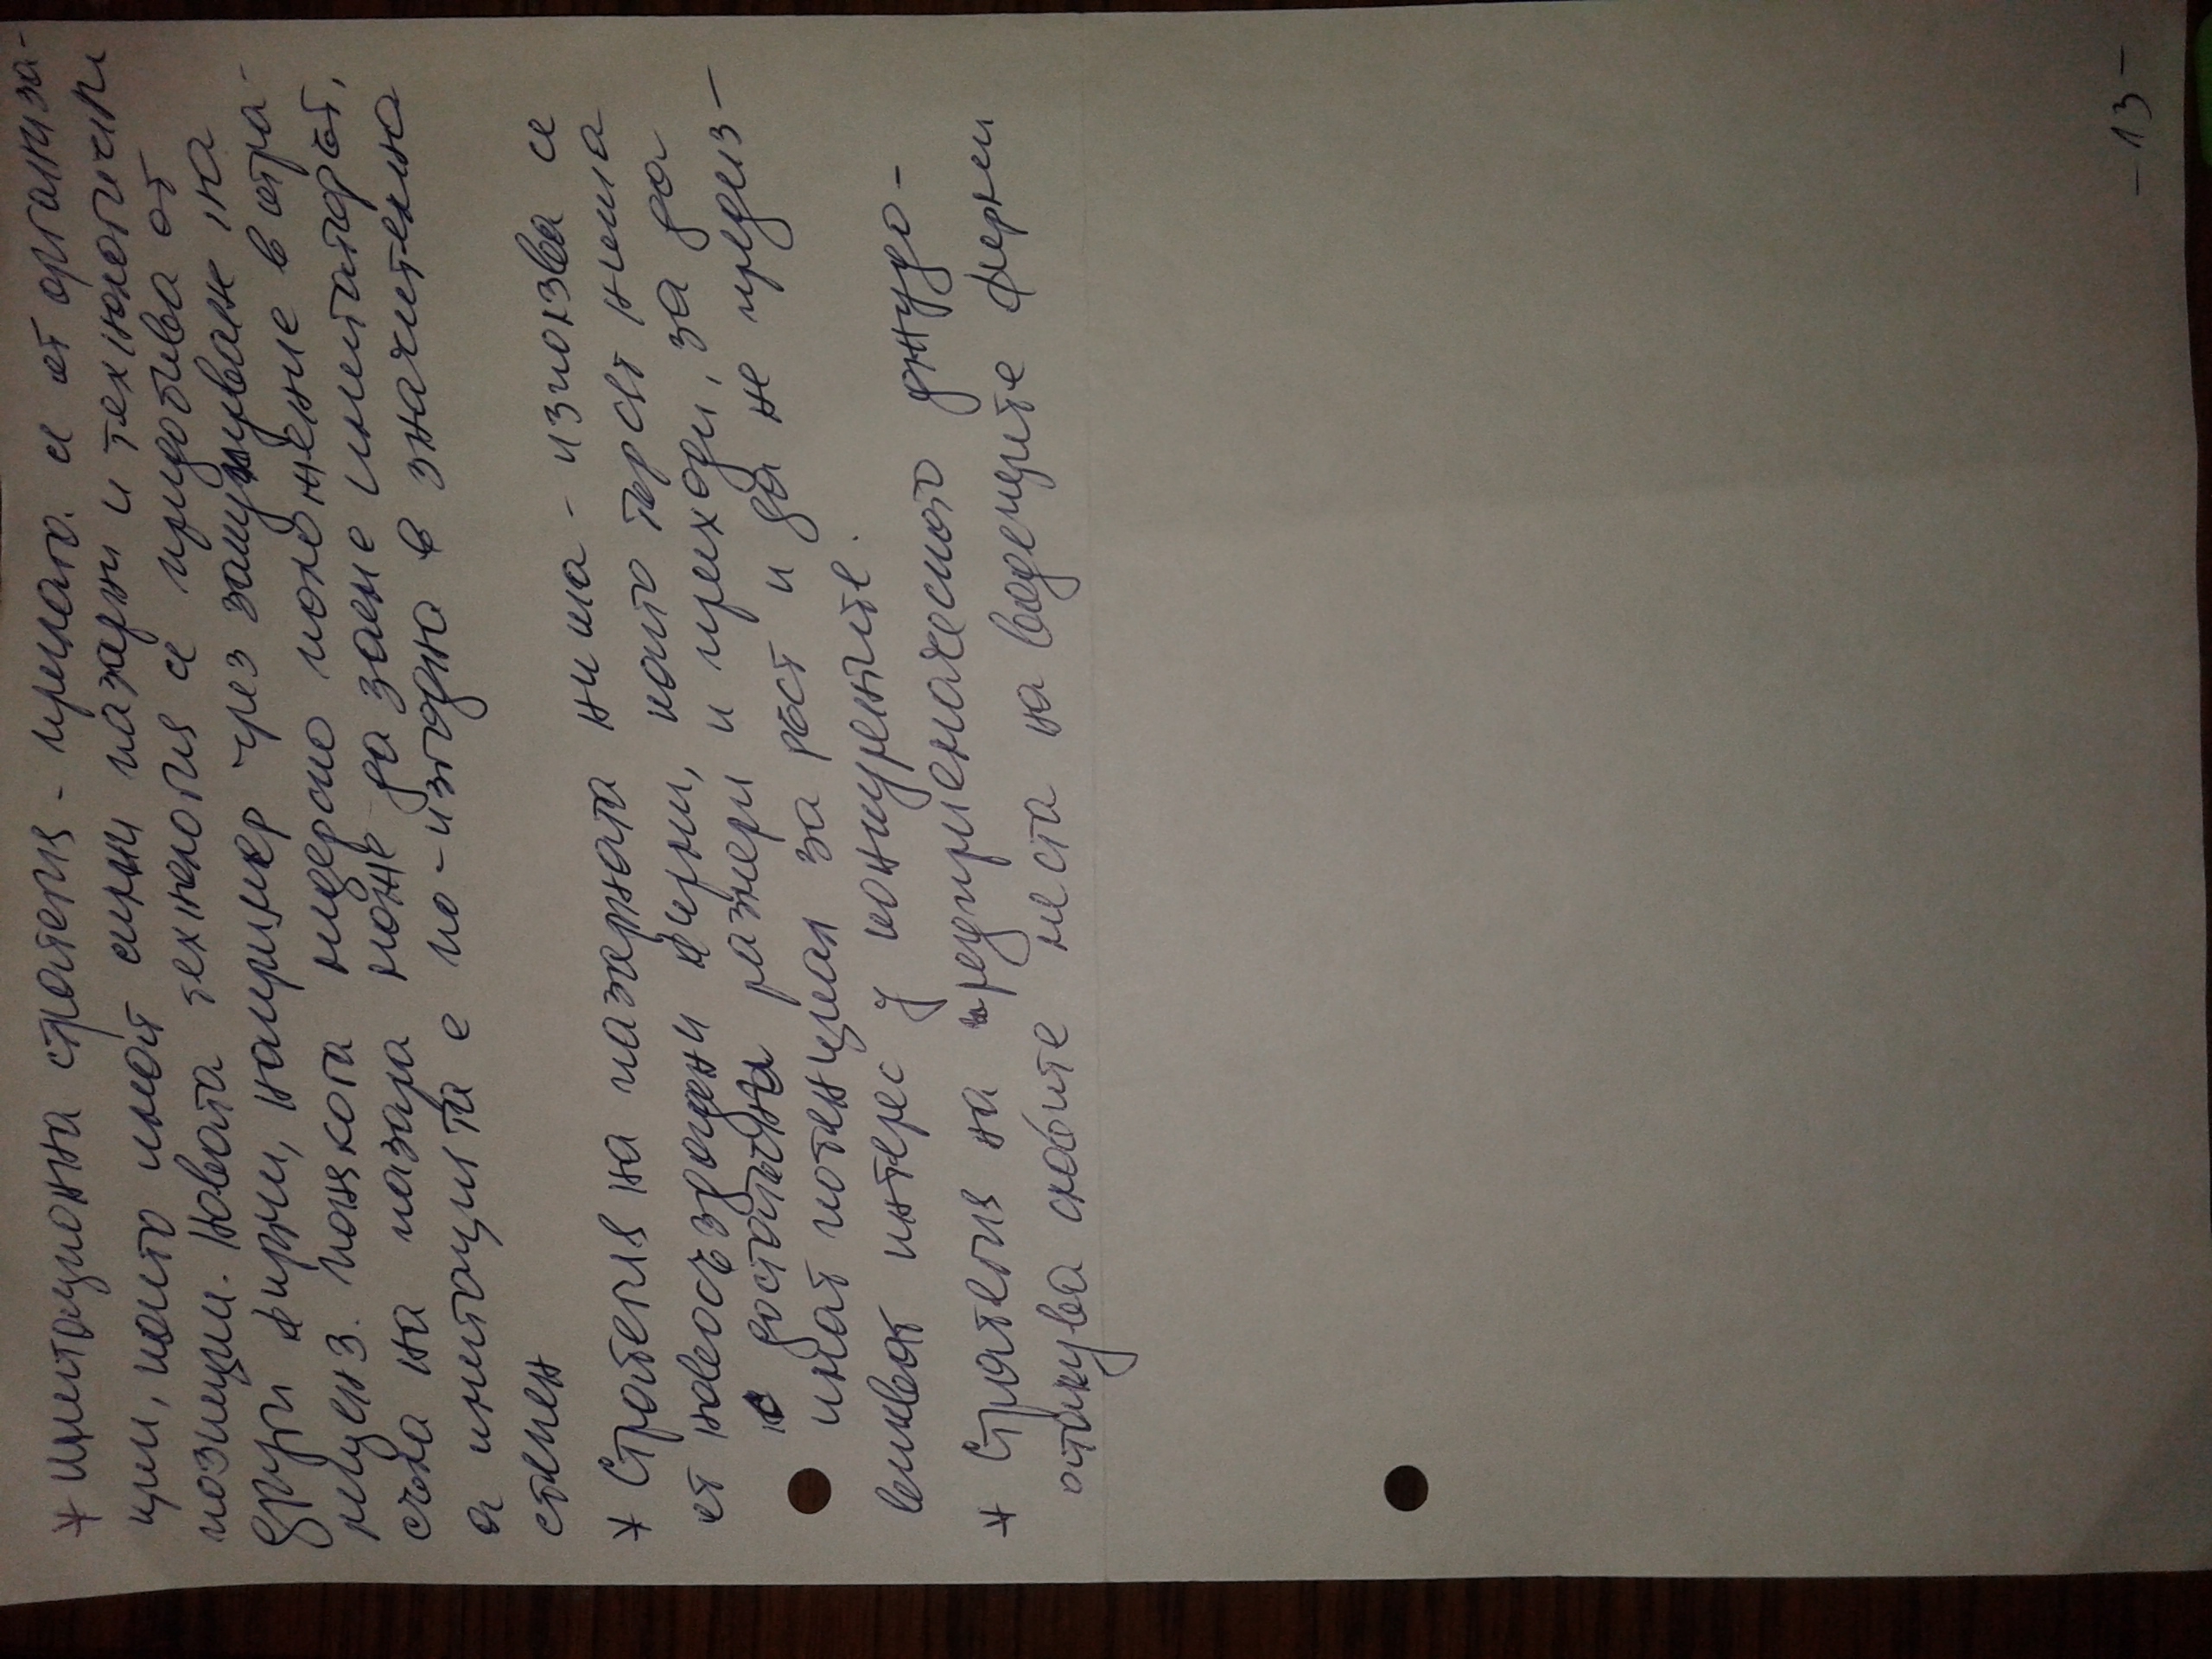 * Имитационна стратегия - прилаг. се от организа-
ции, които имат силни пазарни и технологични
позиции. Новата технология се придобива от
други фирми, например чрез закупуване на
лиценз. Понякога лидерско положение в отра-
съла на пазара може да заеме имитаторът,
а имитацията е по-изгодна в значителна
степен
* Стратегия на пазарната ниша - използва се
от новосъздадени фирми, които търсят ниша
с достатъчни размери и приходи, за да
имат потенциал за растеж и да не предиз-
викват интерес у конкурентите.
* Стратегия на предприемаческото джудо -
атакува слабите места на водещите фирми
- 13 -